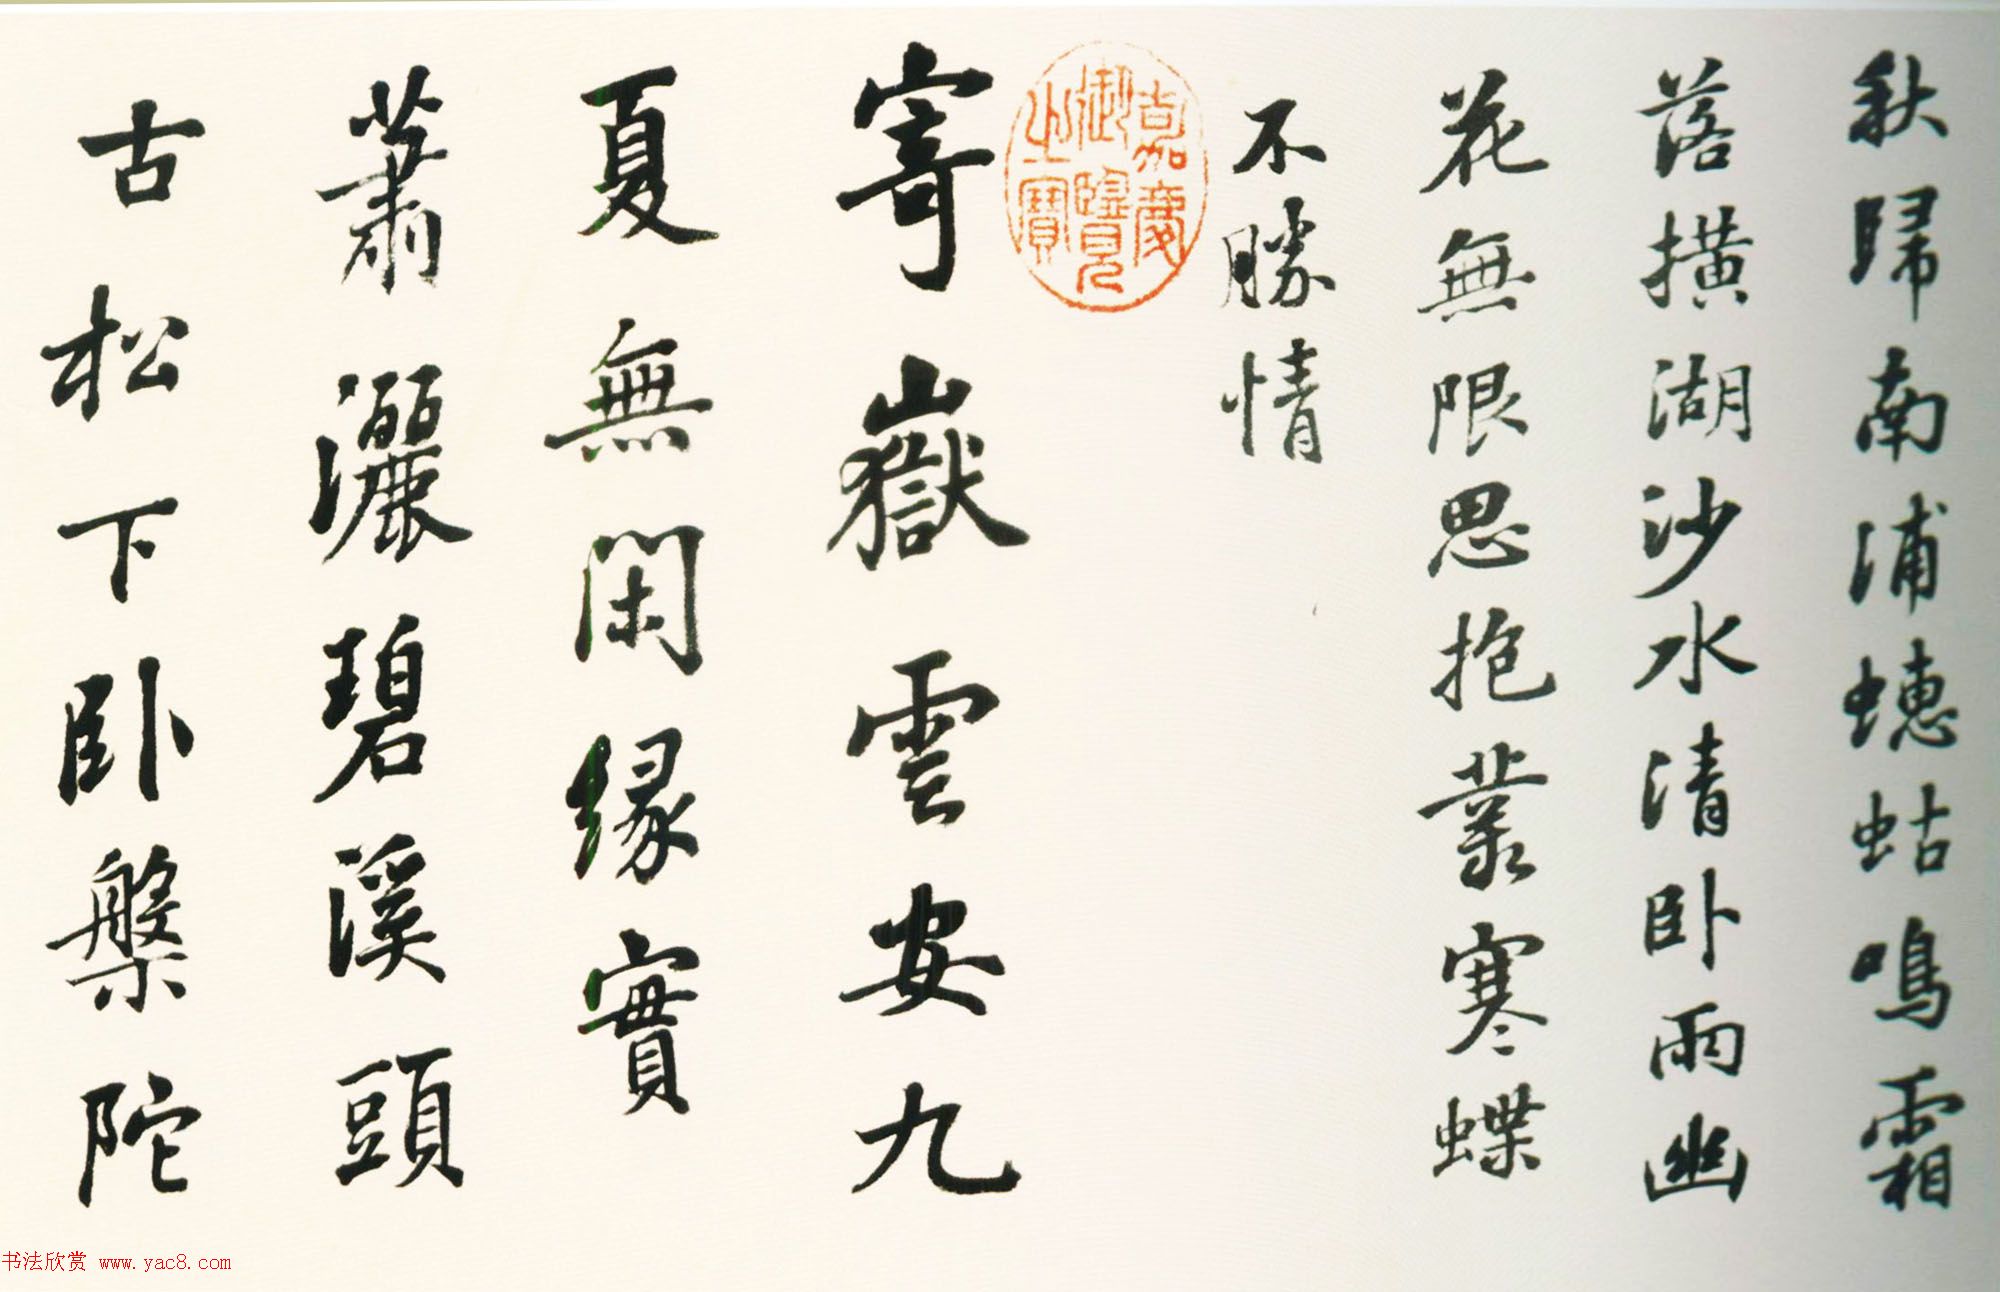 秋歸南浦蟪蛄鳴霜
落撗湖沙水清卧雨幽
花無限思抱叢寒蝶
不勝情
嘉慶
御覽
之寶
寄嶽雲安九
夏無閑縁實
蕭灑碧溪頭
古松下卧槃陀
书法欣赏 www.yac8.com